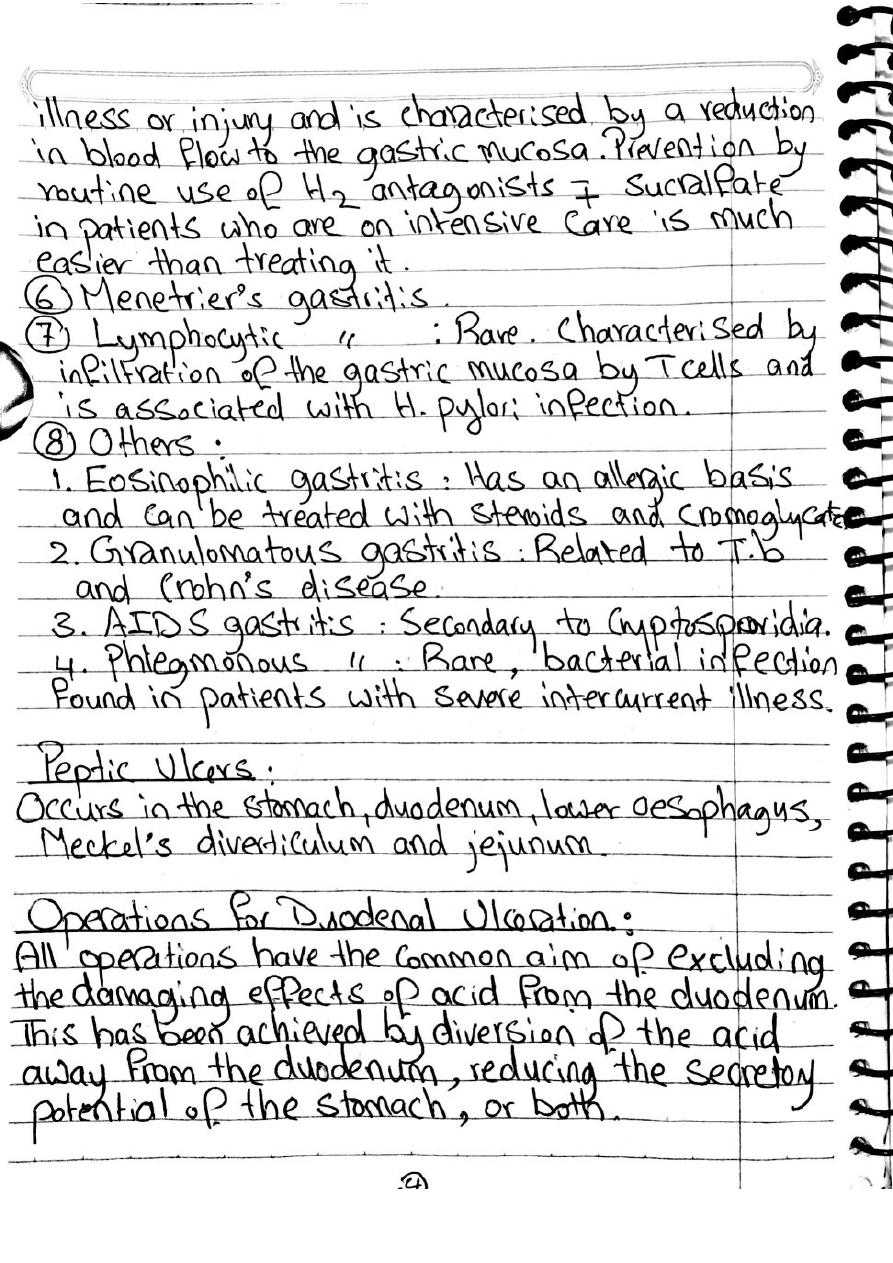 illness or injury and is characterised by a reduction
in blood flow to the gastric mucosa. Prevention by
routine use of H2 antagonists ∓ Sucralfate
in patients who are on intensive care is much
easier than treating it.
⑥ Menetrier's gastritis.
⑦ Lymphocytic " : Rare. Characterised by
infiltration of the gastric mucosa by T cells and
is associated with H. pylori infection.
⑧ Others :
1. Eosinophilic gastritis : Has an allergic basis
and can be treated with steroids and cromoglycate
2. Granulomatous gastritis : Related to T.b
and Crohn's disease.
3. AIDS gastritis : Secondary to Cryptosporidia.
4. Phlegmonous " : Rare, bacterial infection
found in patients with severe intercurrent illness.
Peptic Ulcers :
Occurs in the stomach, duodenum, lower oesophagus,
Meckel's diverticulum and jejunum.
Operations for Duodenal Ulceration :
All operations have the common aim of excluding
the damaging effects of acid from the duodenum.
This has been achieved by diversion of the acid
away from the duodenum, reducing the secretory
potential of the stomach, or both.